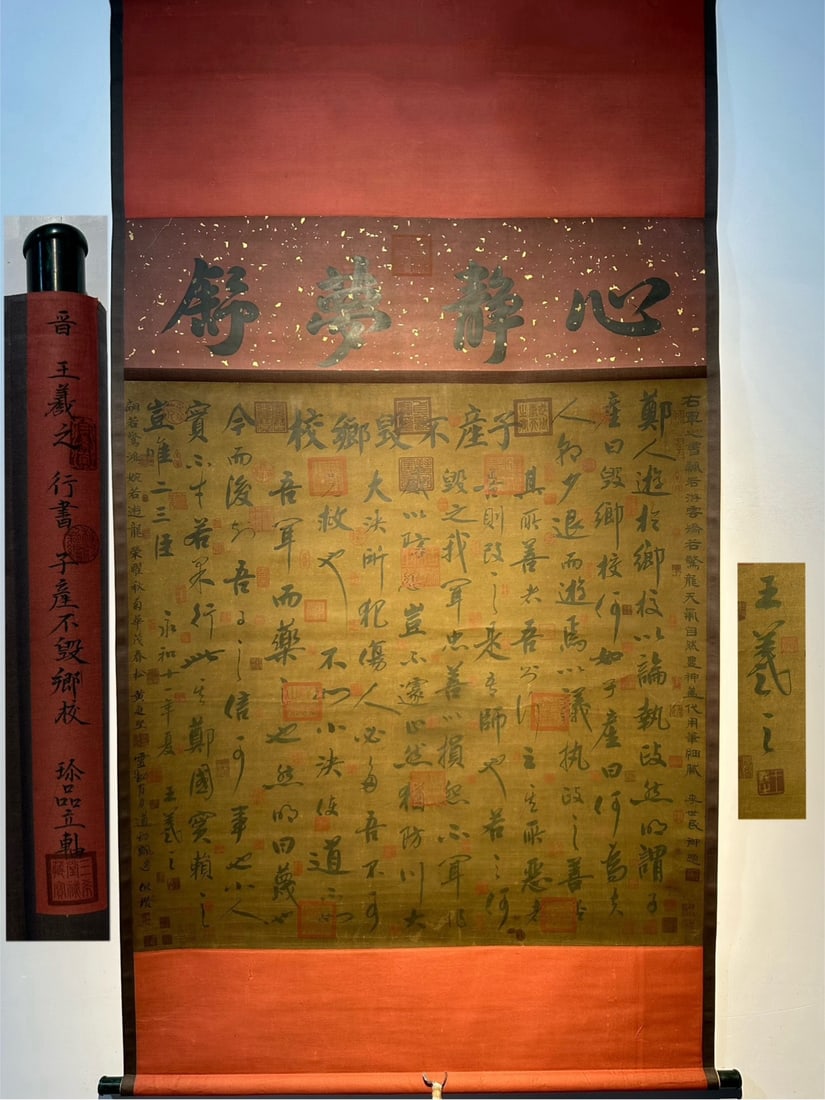 晋 王羲之 行書 子產不毀鄉校 珍品立軸
心靜夢舒
右軍之書飄若游雲矯若驚龍天氣自然豐神蓋代用筆細膩 李世民御題
子產不毀鄉校
鄭人遊於鄉校以論執政然明謂子
產曰毀鄉校何如子產曰何為夫
人朝夕退而遊焉以議执政之善否
其所善者吾則行之其所惡者
吾則改之是吾師也若之何
毀之我聞忠善以損怨不聞作
威以防怨豈不遽止然猶防川大
大決所犯傷人必多吾不可
克救也不如小決使道不如
吾聞而藥之也然明曰蔑也
今而後知吾子之信可事也小人
實不才若果行此其鄭國實賴之
豈唯二三臣 永和十一年夏 王羲之
翩若驚鴻婉若遊龍榮曜秋菊華茂春松 黃庭堅
王羲之